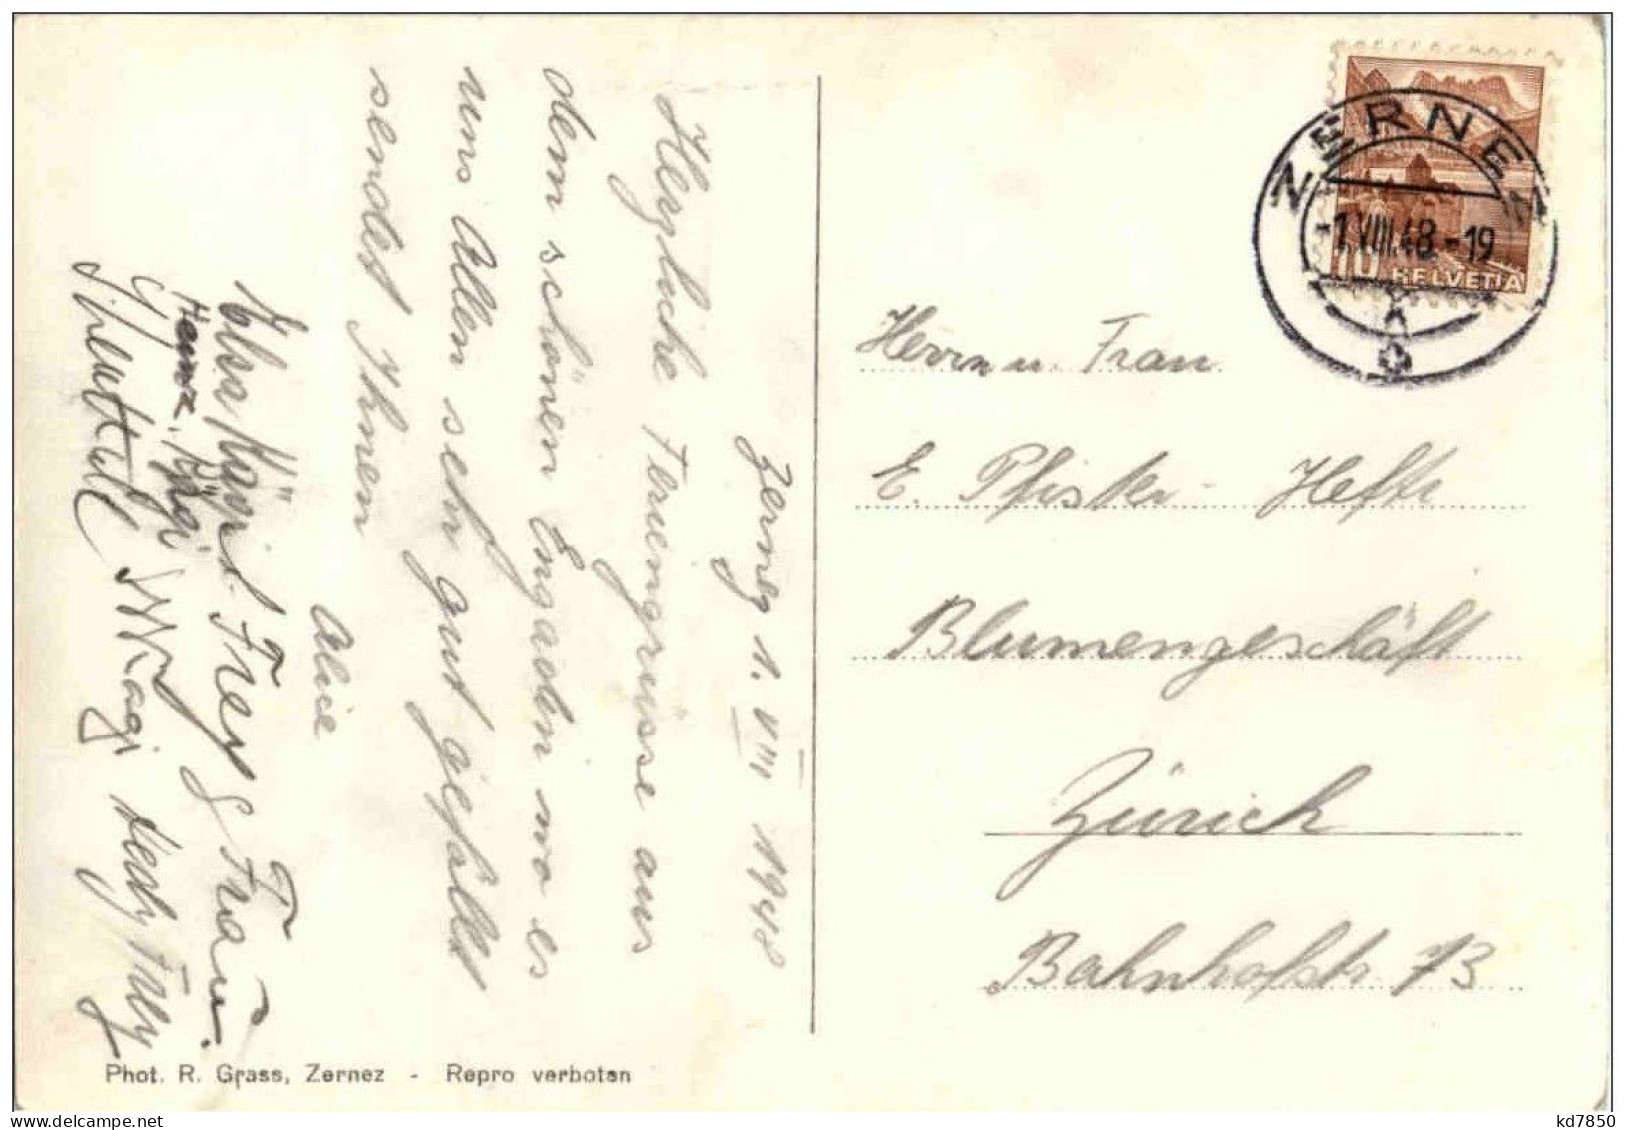 Zernez 1. VIII 1948
Herzliche Feriengrüsse aus
dem schönen Engadin wo es
uns Allen sehr gut gefällt
sendet Ihnen
Alice
Frey & Frau.
Heinz
Hedy Frey
Phot. R. Grass, Zernez - Repro verboten
ZERNEZ
-1.VIII.48.-19
10 HELVETIA
Herrn u. Frau
E. Pfister-Hefti
Blumengeschäft
Zürich
Bahnhofstr. 73
kd7850